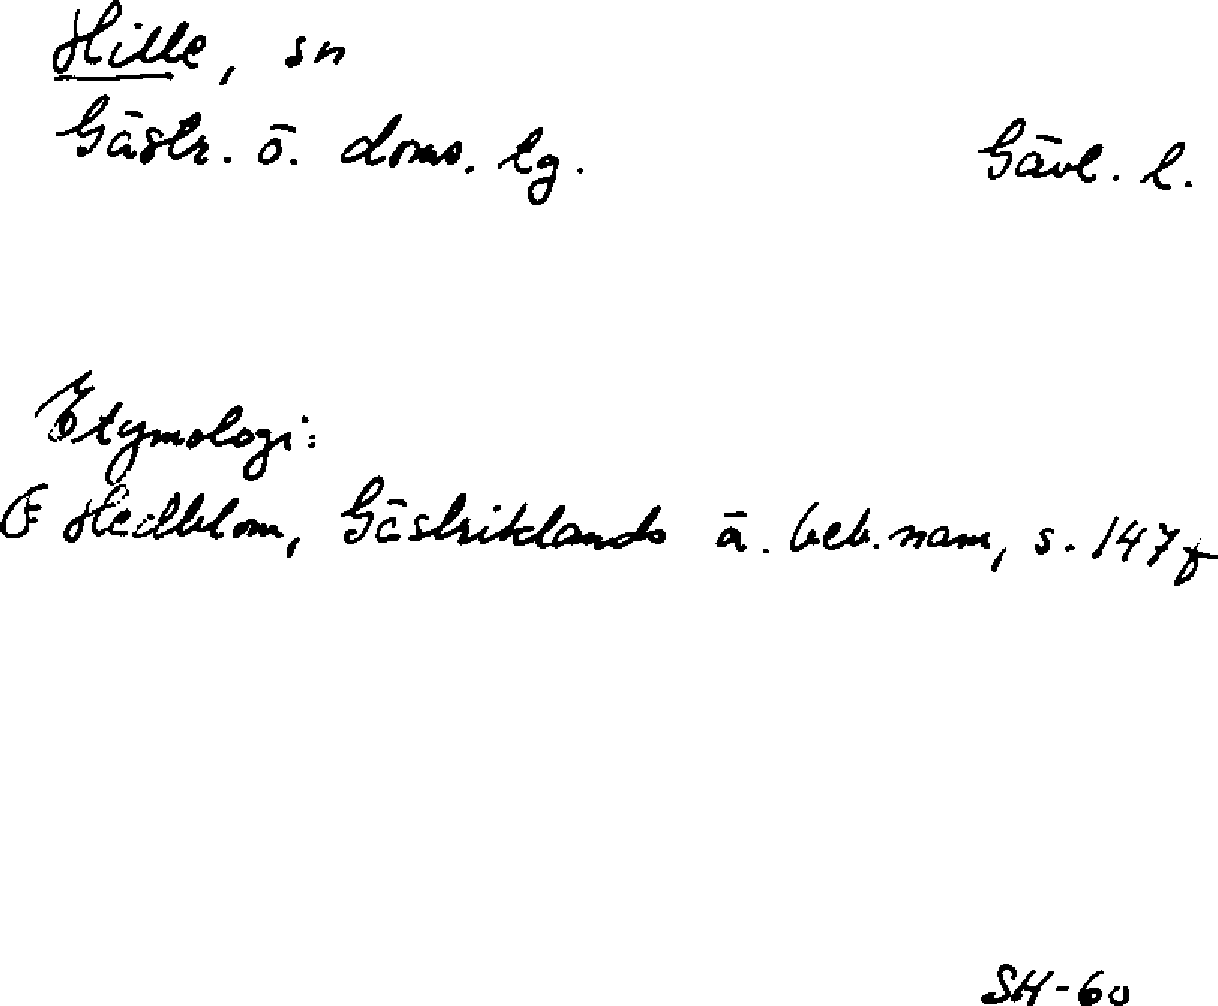 Hille, sn
Gästr. ö. doms. tg. Gävl. l.
Etymologi:
F Hedblom, Gästriklands ä. beb.namn, s. 147 f
SH-60